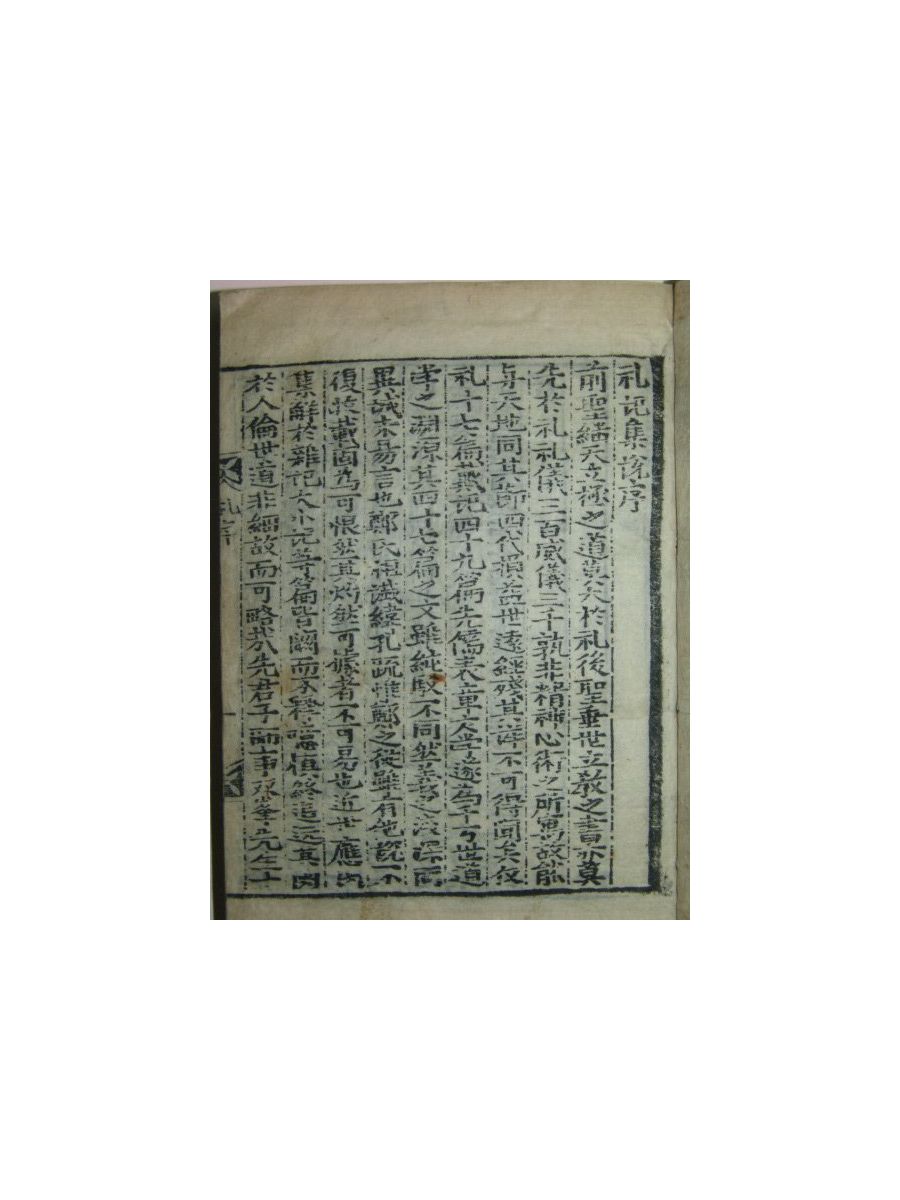 礼記集說序
前聖繼天立極之道莫大於礼後聖垂世立教之書亦莫
先於礼礼儀三百威儀三千孰非精神心術之所寓故能
与天地同其節四代損益世遠經殘其詳不可得聞矣仪
礼十七篇戴记四十九篇先儒表章大学遂為千万世道
学之淵源其四十七篇之文雖純駁不同然義之淺深同
異誠未易言也鄭氏祖讖緯孔疏惟鄭之從雖有他說不
復收載固為可恨然其灼然可據者不可易也近世應氏
集解於雜记大小记等篇皆闕而不釋噫慎終追远其関
於人倫世道非細故而可略哉先君子師事双峯先生十
礼序
一